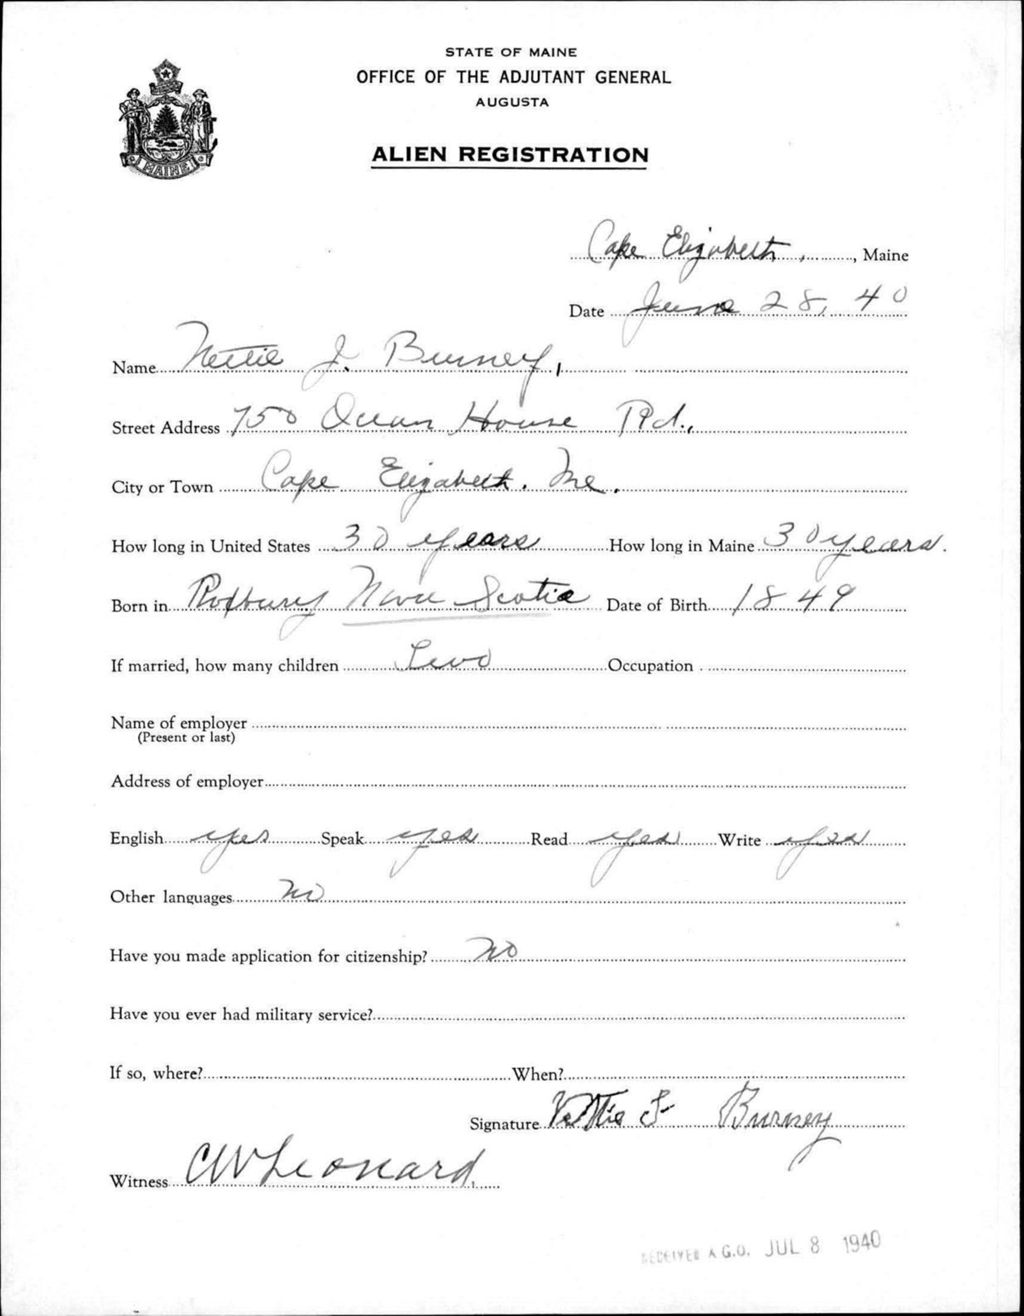 STATE OF MAINE
OFFICE OF THE ADJUTANT GENERAL
AUGUSTA
ALIEN REGISTRATION
MAINE
Cape Elizabeth, Maine
Date June 28, 40
Name Nettie J. Burney,
Street Address 750 Ocean House Rd.,
City or Town Cape Elizabeth. Me.
How long in United States 30 years How long in Maine 30 years.
Born in Roxbury Nova Scotia Date of Birth 1849
If married, how many children Two Occupation
Name of employer
(Present or last)
Address of employer
English yes Speak yes Read yes Write yes
Other languages no
Have you made application for citizenship? No
Have you ever had military service?
If so, where? When?
Signature Nettie J Burney
Witness CW Leonard.
RECEIVED A.G.O. JUL 8 1940